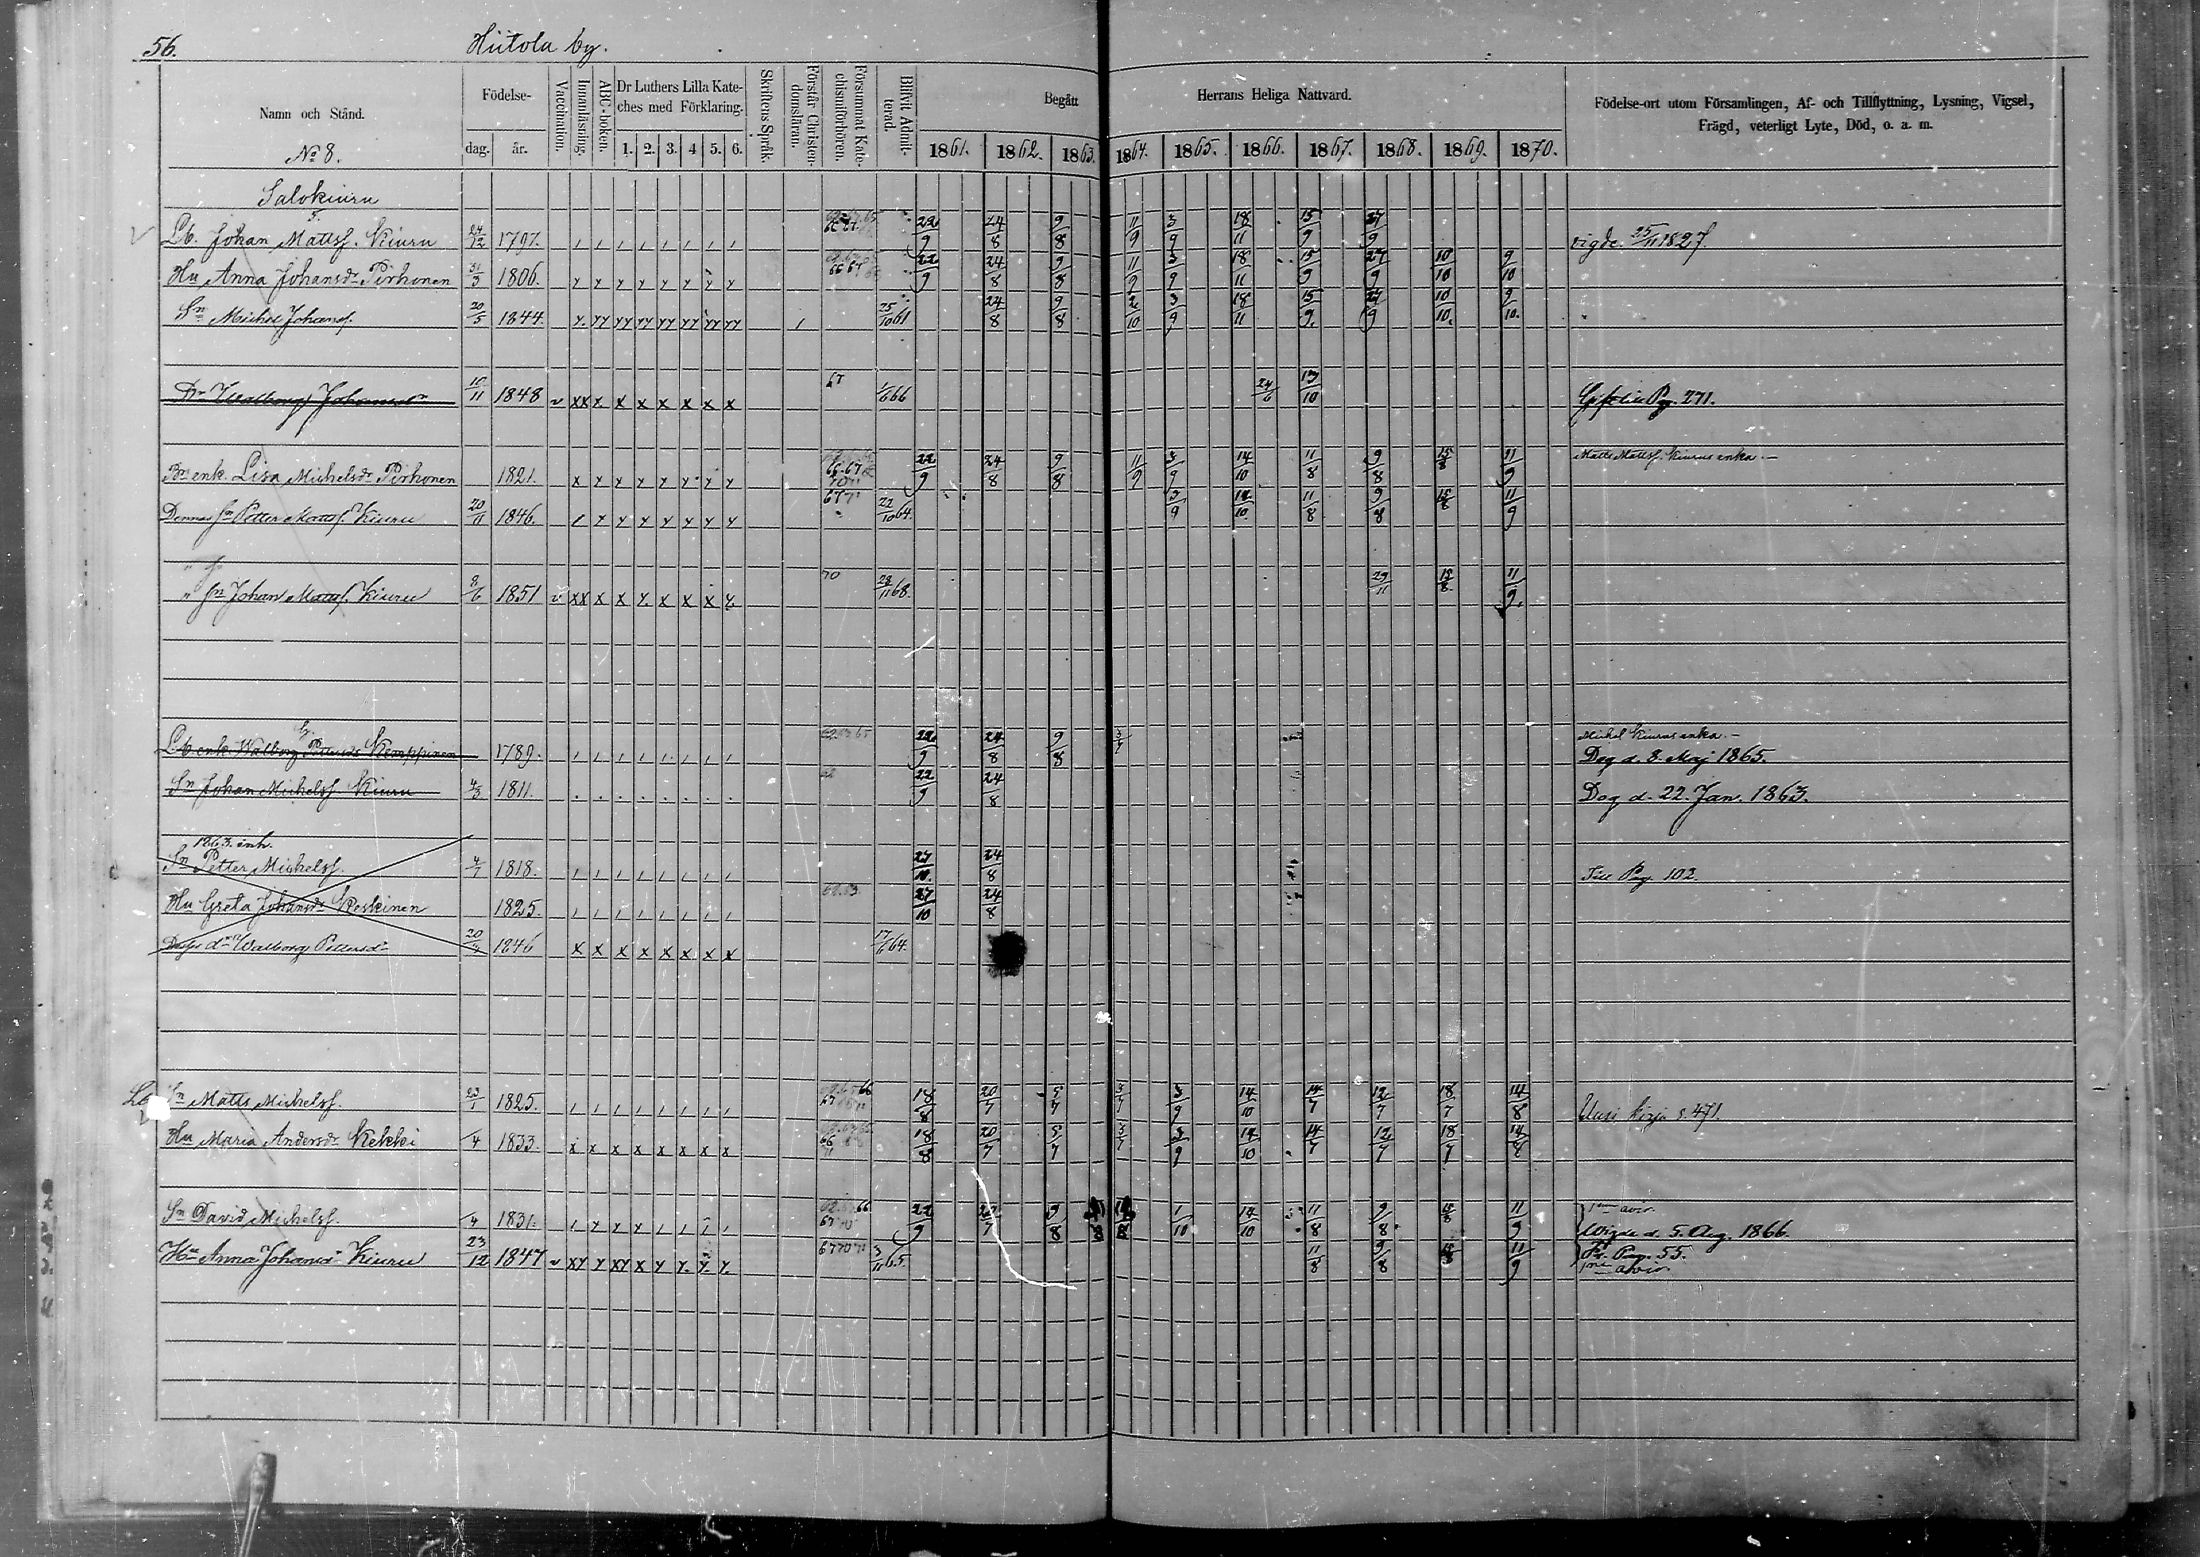 56.
Hiitola by.
Namn och Stånd.
Födelse-
dag.
år.
Vaccination.
Innanläsning.
ABC-boken.
Dr Luthers Lilla Kate-
ches med Förklaring.
1. 2. 3. 4 5. 6.
Skriftens Språk.
Förstår Christen-
domsläran.
Försummat Kate-
chismiförhören.
Blifvit Admit-
terad.
Begått
Herrans Heliga Nattvard.
1861. 1862. 1863. 1864. 1865. 1866. 1867. 1868. 1869. 1870.
Födelse-ort utom Församlingen, Af- och Tillflyttning, Lysning, Vigsel,
Frägd, veterligt Lyte, Död, o. a. m.
No 8.
Salokiuru
Lb. Johan Mattsf. Kiuru 24/12 1797. 22/9 24/8 9/8 11/9 3/9 18/11 15/9 27/9 vigde 25/11 1827.
Hu Anna Johansdr Pirhonen 31/3 1806. 22/9 24/8 9/8 11/9 3/9 18/11 15/9 27/9 10/10 9/10
Sn Michel Johansf. 20/5 1844. 25/10 61 24/8 9/8 2/10 3/9 18/11 15/9. 27/9 10/10. 9/10.
Dr Walborg Johansdr 10/11 1848 v xx x x x x x x x 67 1/6 66 24/6 13/10 Pag. 271.
Br enk. Lisa Michelsdr Pirhonen 1821. 66-67 22/9 24/8 9/8 11/9 3/9 14/10 11/8 9/8 15/8 11/9 Matts Mattsf. Kiurus enka.
Dennas sn Petter Mattsf. Kiuru 20/11 1846. 22/10 64. 3/9 14/10. 11/8 9/8 15/8 11/9
" sn Johan Mattsf. Kiuru 8/6 1851 70 28/11 68. 29/11 15/8. 11/9.
Lb enk. Walborg Pettersdr Kemppinen 1789. 22/9 24/8 9/8 3/7 Michel Kiurus enka.
Dog d. 8. Maj 1865.
Sn Johan Michelsf. Kiuru 4/3 1811. 62 22/9 24/8 Dog d. 22. Jan. 1863.
1863. inh.
Sn Petter Michelsf. 4/7 1818. 27/10. 24/8 Till Pag. 102.
Hu Greta Johansdr Keskinen 1825. 62.63. 27/10 24/8
dr Walborg Pettersdr 20/4 1846 x x x x x x x x 17/6 64.
Sn Matts Michelsf. 23/1 1825. 18/8 20/7 5/7 3/7 3/9 14/10 14/7 12/7 18/7 14/8 Uusi kirja s. 471.
Hu Maria Andersdr Kekki /4 1833. x x x x x x x x 18/8 20/7 5/7 3/7 3/9 14/10 14/7 12/7 18/7 14/8
Sn David Michelsf. /4 1831. 22/9 9/8 1/10 14/10 11/8 9/8 15/8 11/9
Wigde d. 5. Aug. 1866.
Hu Anna Johansdr Kiuru 23/12 1847 3/11 65. 11/8 9/8 15/8 11/9 Fr. Pag. 55.